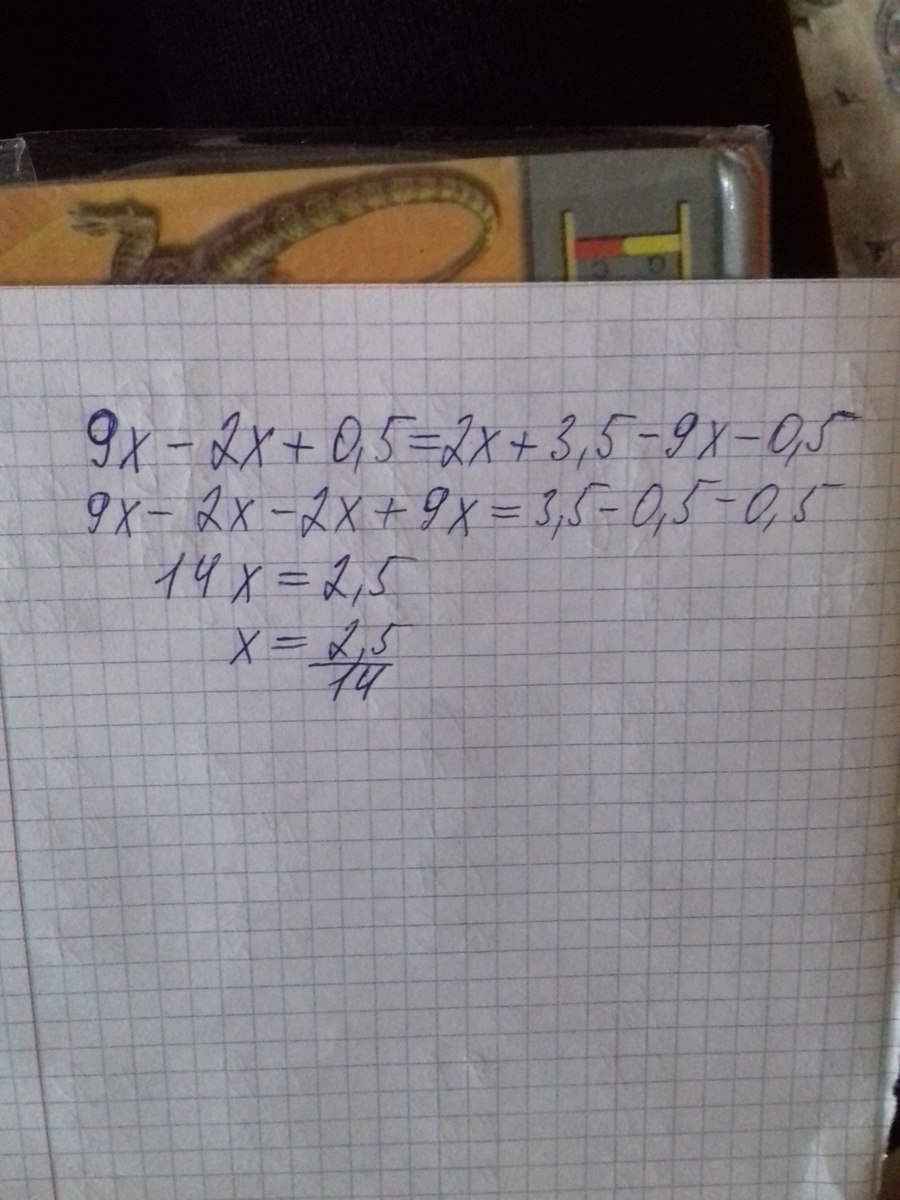 9x - 2x + 0,5 = 2x + 3,5 - 9x - 0,5
9x - 2x - 2x + 9x = 3,5 - 0,5 - 0,5
14x = 2,5
x = 2,5/14